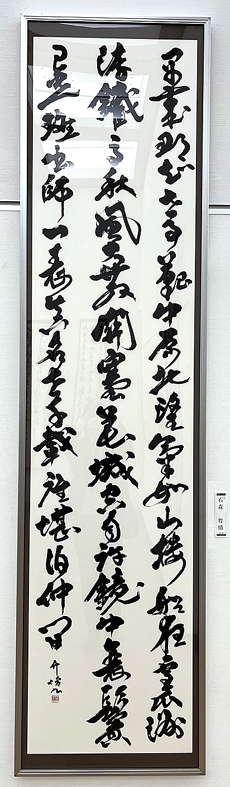 早歲那知世事艱中原北望氣如山樓船夜雪瓜洲
渡鐵馬秋風大散關塞上長城空自許鏡中衰鬢
已先斑出師一表真名世千載誰堪伯仲間
石森